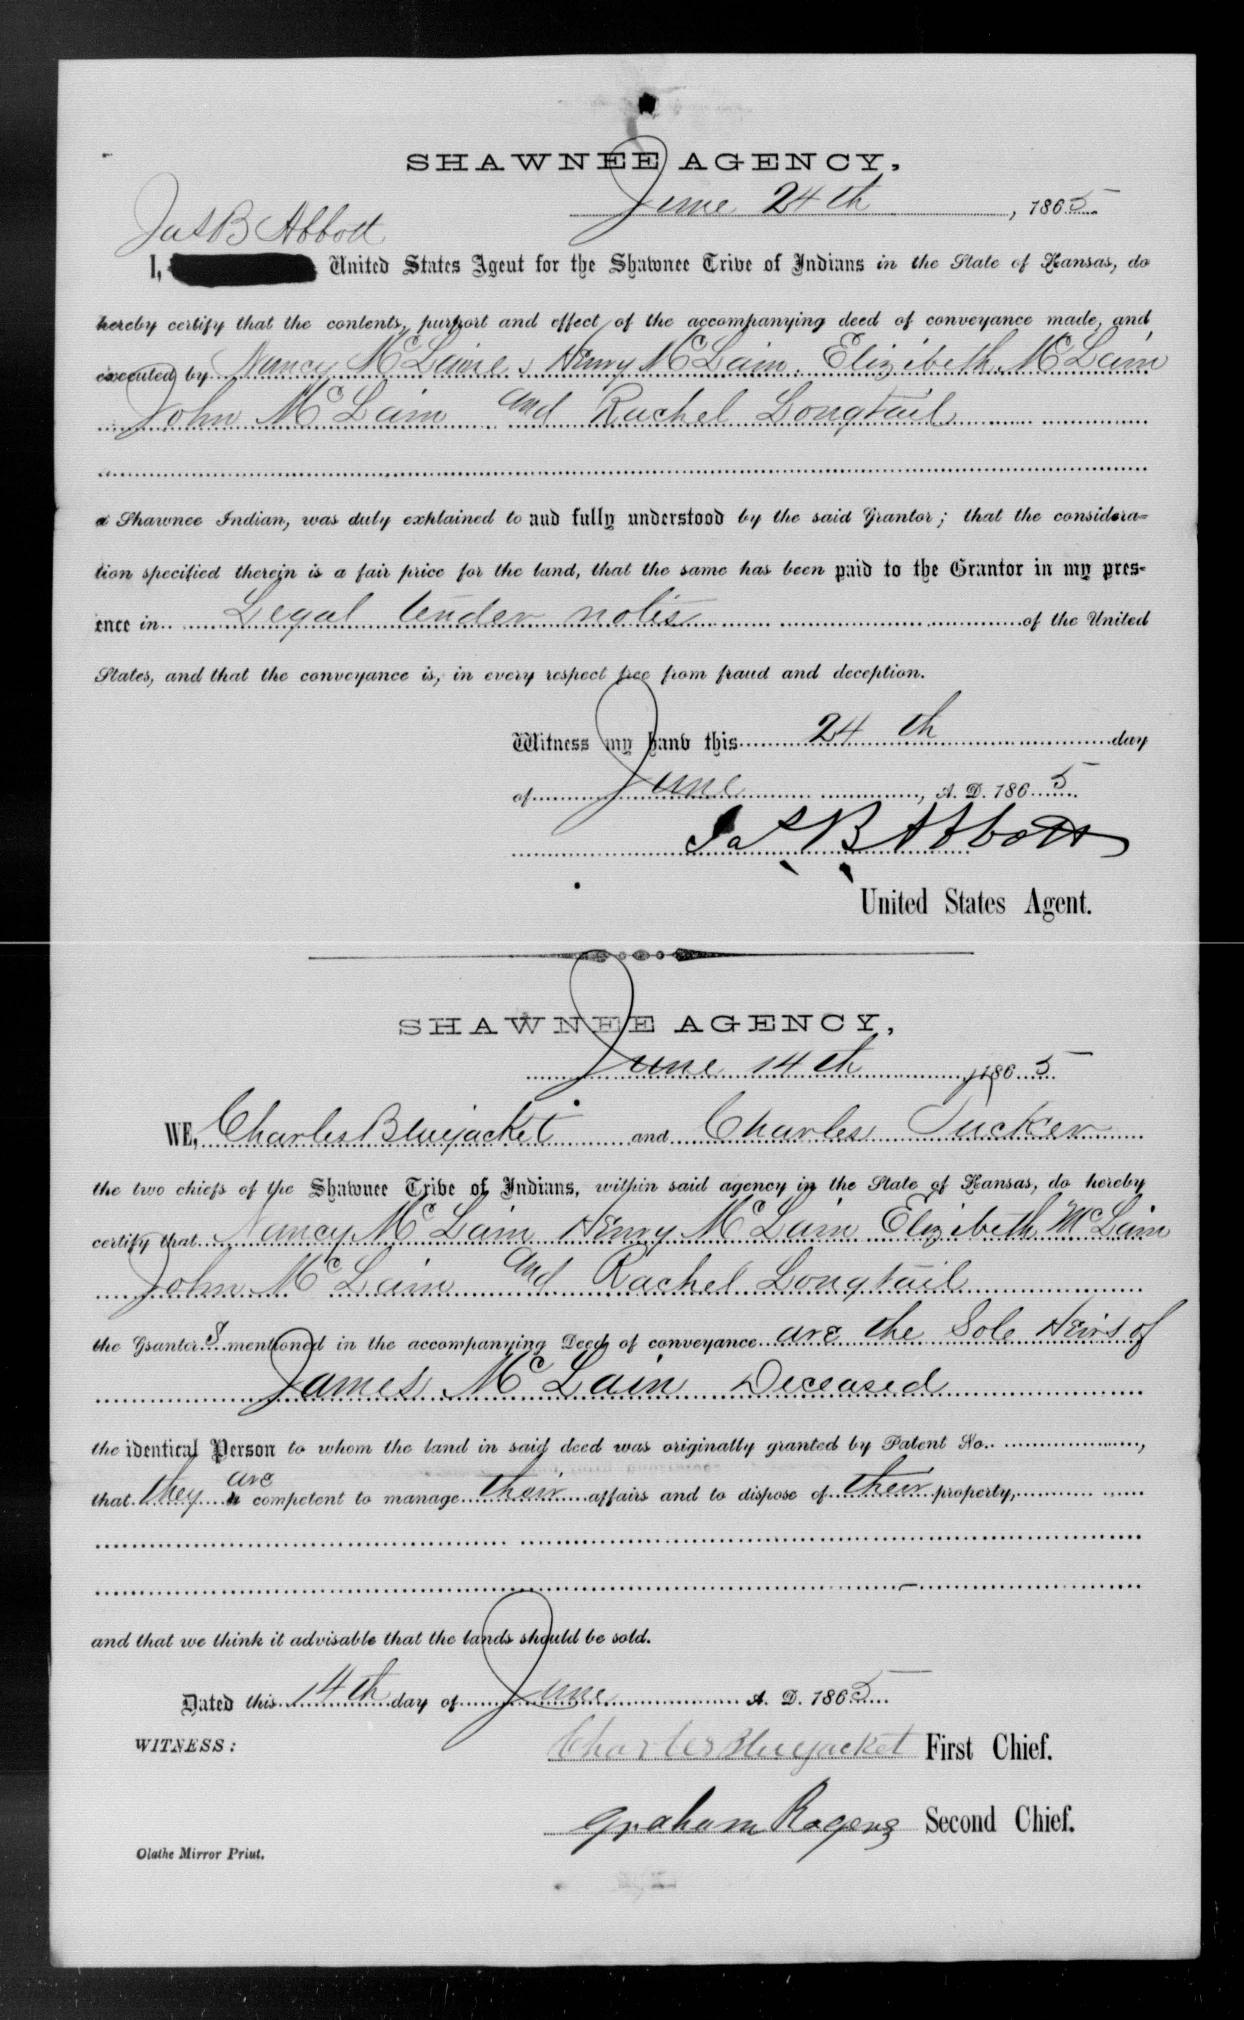 SHAWNEE AGENCY,
June 24th, 1865
Jas B Abbott
I, United States Agent for the Shawnee Tribe of Indians in the State of Kansas, do
hereby certify that the contents, purport and effect of the accompanying deed of conveyance made, and
executed by Nancy McLaine, Henry McLain, Elizibeth McLain
John McLain and Rachel Longtail
a Shawnee Indian, was duly explained to and fully understood by the said Grantor; that the considera-
tion specified therein is a fair price for the land, that the same has been paid to the Grantor in my pres-
ence in Legal tender notes of the United
States, and that the conveyance is, in every respect free from fraud and deception.
Witness my hand this 24th day
of June, A. D. 1865
Jas B Abbott
United States Agent.
SHAWNEE AGENCY,
June 14th, 1865
WE, Charles Bluejacket and Charles Tucker
the two chiefs of the Shawnee Tribe of Indians, within said agency in the State of Kansas, do hereby
certify that Nancy McLain Henry McLain Elizibeth McLain
John McLain and Rachel Longtail
the Grantors mentioned in the accompanying Deed of conveyance are the Sole Heirs of
James McLain Deceased
the identical Person to whom the land in said deed was originally granted by Patent No. ,
are
that they competent to manage their affairs and to dispose of their property,
and that we think it advisable that the lands should be sold.
Dated this 14th day of June A. D. 1865
WITNESS: Charles Bluejacket First Chief.
Graham Rogers Second Chief.
Olathe Mirror Print.